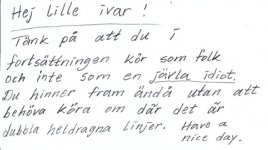 Hej Lille ivar!
Tänk på att du i
fortsättningen kör som folk
och inte som en jävla idiot.
Du hinner fram ändå utan att
behöva köra om där det är
dubbla heldragna linjer. Have a
nice day.